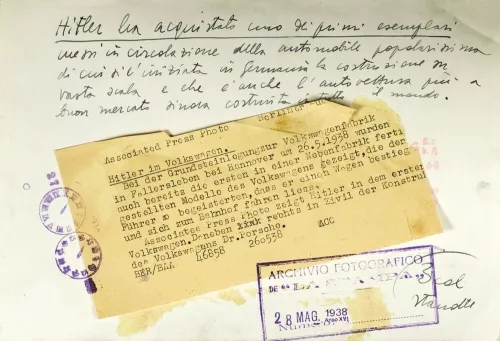 Hitler ha acquistato uno dei primi esemplari
messi in circolazione della automobile popolarissima
di cui si è iniziata in Germania la costruzione su
vasta scala e che è anche l'autovettura più a
buon mercato sinora costruita in tutto il mondo.
Associated Press Photo Berliner
Hitler im Volkswagen.
Bei der Grundsteinlegung zur Volkswagenfabrik
in Fallersleben bei Hannover am 26.5.1938 wurden
auch bereits die ersten in einer Nebenfabrik ferti
gestellten Modelle des Volkswagens gezeigt, die der
Führer so begeisterten, dass er einen Wagen bestieg
und sich zum Bahnhof fahren liess.
Associated Press Photo zeigt Hitler in dem ersten
Volkswagen. Daneben xxxk rechts in Zivil der Konstruk
des Volkswagens Dr. Porsche.
BER/BAA 46858 260538 WOC
ARCHIVIO FOTOGRAFICO
DE
28 MAG. 1938
Anno XVI